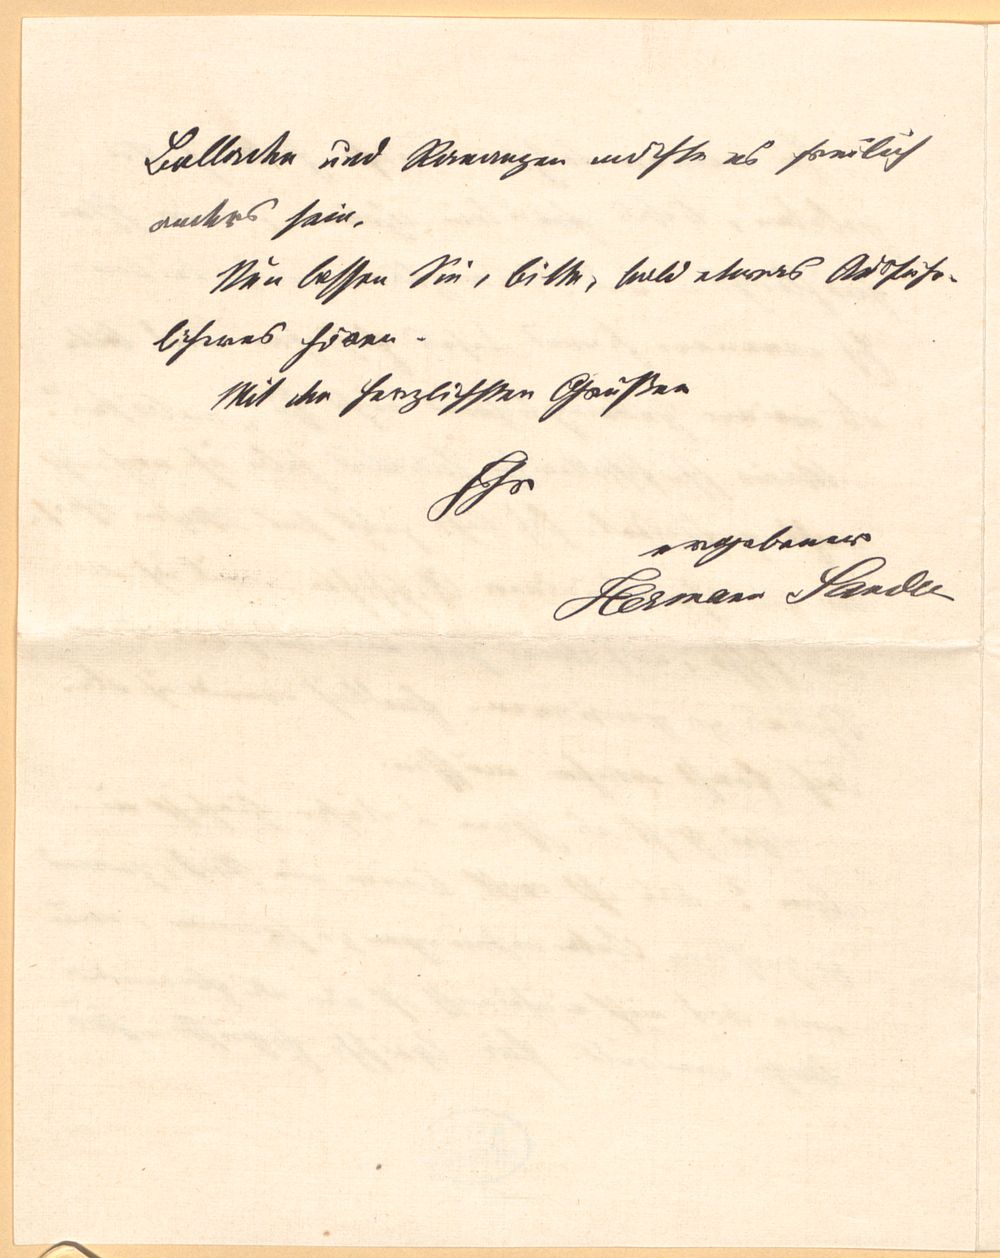 Balladen und Romanzen möchte es freilich
anders sein.
Nun lassen Sie, bitte, bald etwas Ausführ-
licheres hören.
Mit den herzlichsten Grüßen
Ihr
ergebener
Hermann